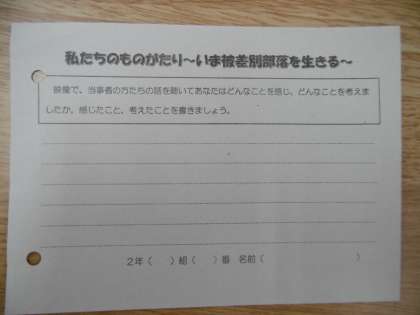 私たちのものがたり～いま被差別部落を生きる～
映像で、当事者の方たちの話を聴いてあなたはどんなことを感じ、どんなことを考えま
したか。感じたこと、考えたことを書きましょう。
２年（　　）組（　　）番　名前（　　　　　　　　　）